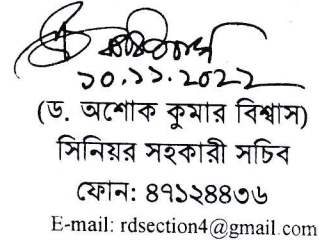 ১০.১১.২০২২
(ড. অশোক কুমার বিশ্বাস)
সিনিয়র সহকারী সচিব
ফোন: ৪৭১২৪৪৩৬
E-mail: rdsection4@gmail.com